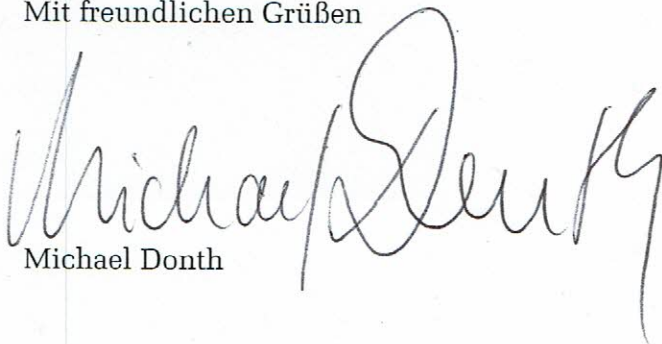 Mit freundlichen Grüßen
Michael Donth
Michael Donth